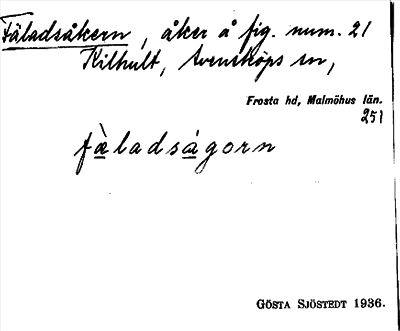 Fäladsåkern, åker å fig. num. 21
Kilhult, Svensköps sn,
Frosta hd, Malmöhus län.
251
fàladságorn
GÖSTA SJÖSTEDT 1936.